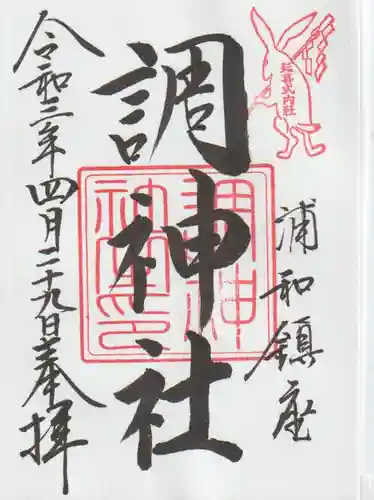 延喜式内社
浦和鎮座
調神社
調神社之印
令和三年四月二十九日奉拝